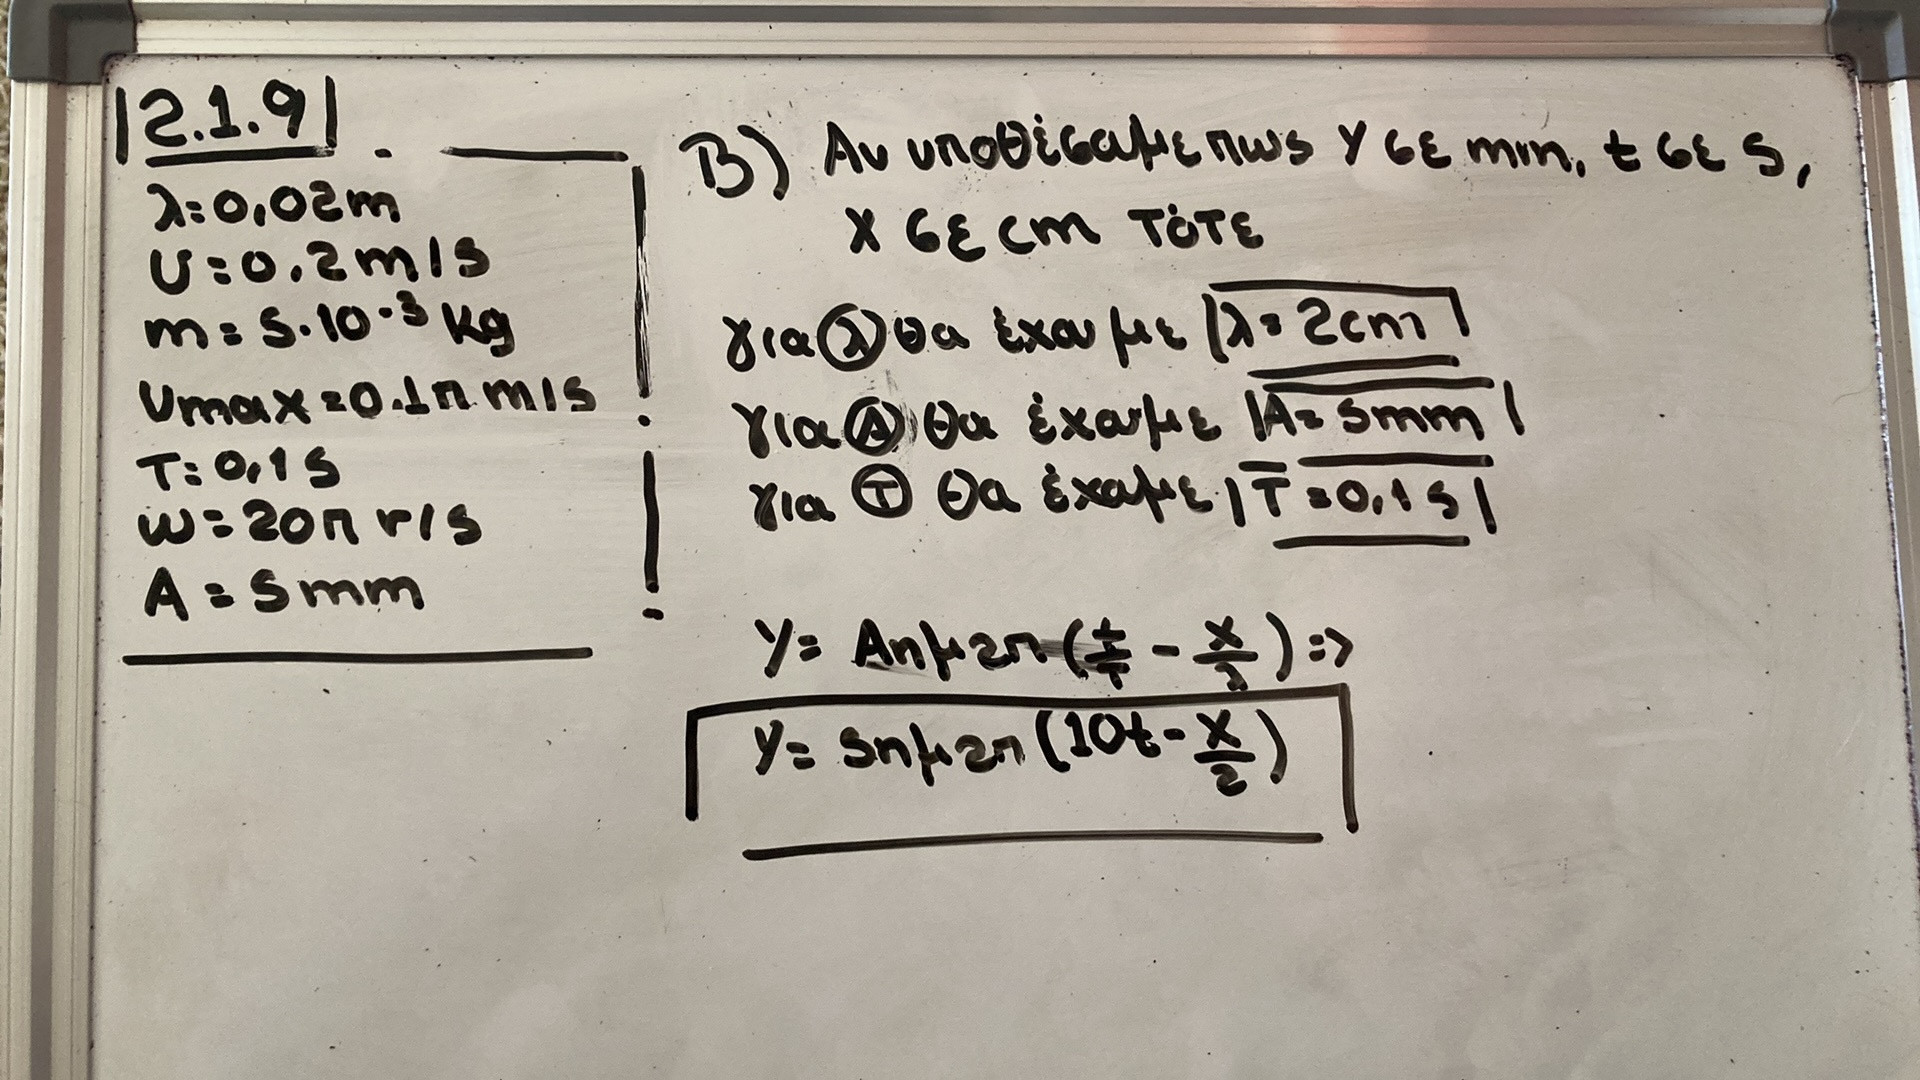 2.1.9
λ=0,02m
υ=0.2m/s
m=5·10⁻³ kg
υmax=0.1π m/s
T=0,1s
ω=20π r/s
A=5mm
B) Αν υποθέσαμε πως y σε mm, t σε s,
x σε cm τότε
για λ θα έχουμε λ=2cm
για A θα έχουμε A=5mm
για T θα έχουμε T=0,1s
y= Aημ2π(t/T - x/λ) =>
y= 5ημ2π(10t - x/2)